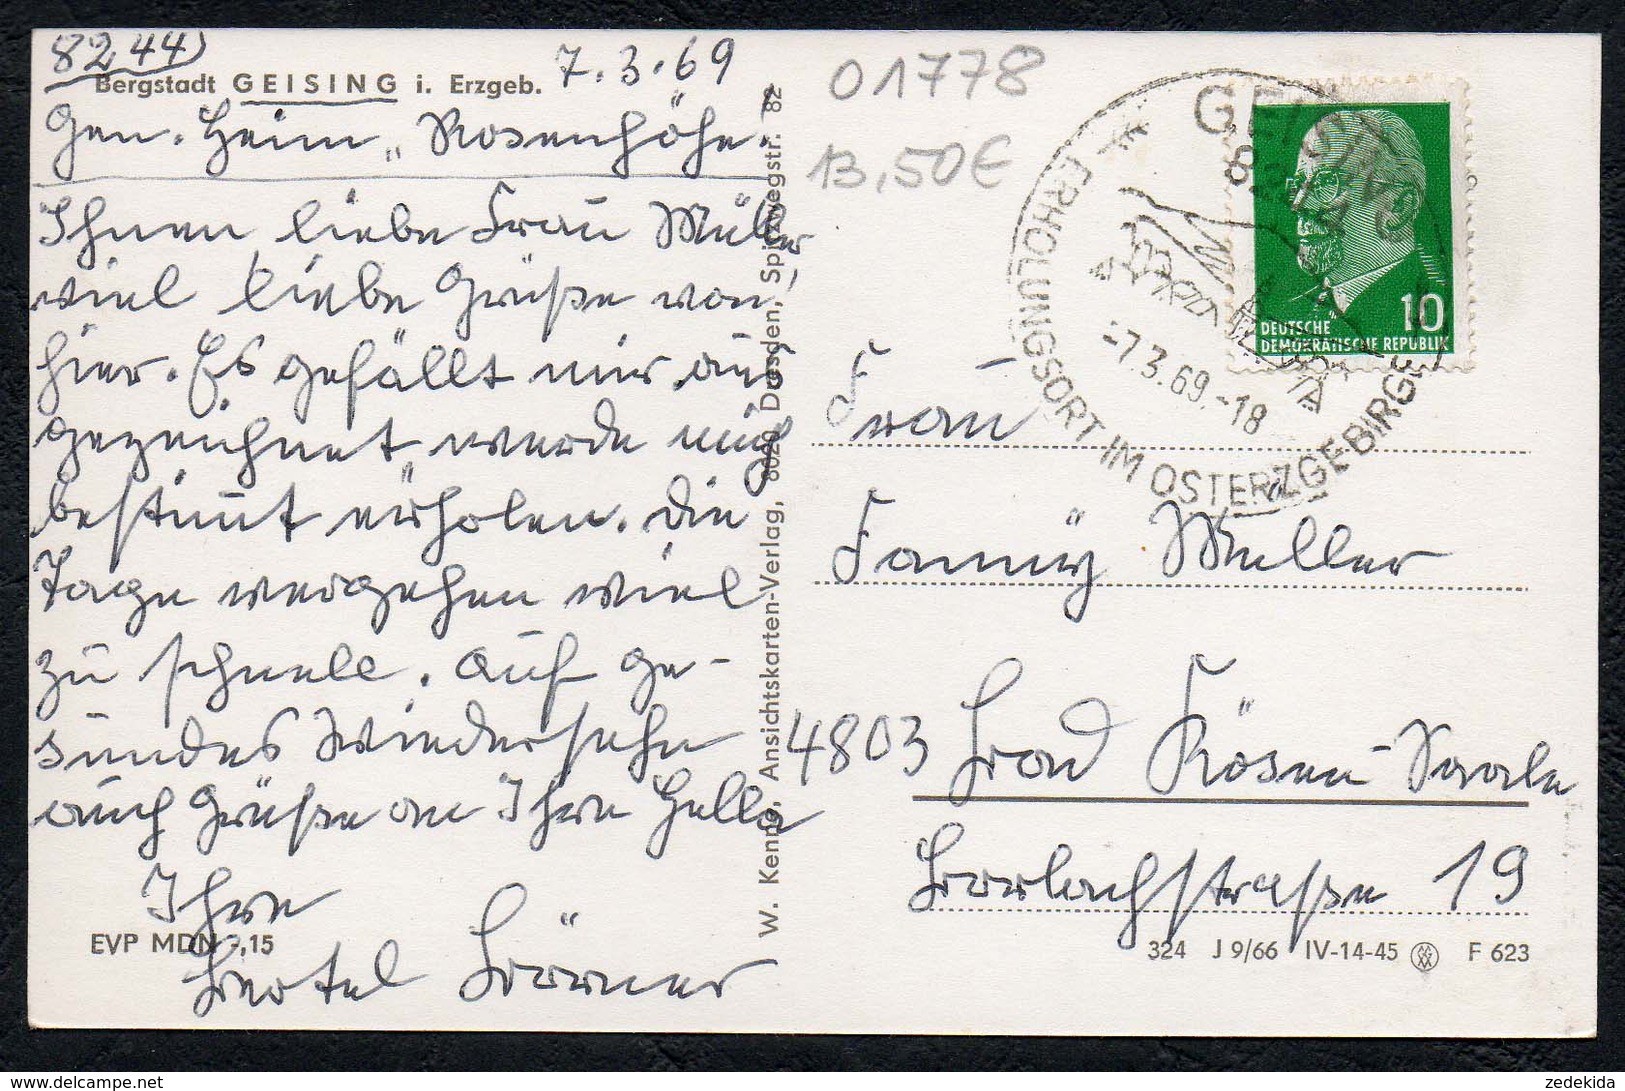 8244
Bergstadt GEISING i. Erzgeb. 7.3.69
Gen. Heim „Rosenhöhe.
Ihnen liebe Frau Müller,
viel liebe Grüße von
hier. Es gefällt mir aus
gezeichnet, werde mich
bestimmt erholen. Die
Tage vergehen viel
zu schnell. Auf ge-
sundes Wiedersehn
auch Grüße an Ihre Hella
Ihre
Hertel
EVP MDN -,15
W. Kenno, Ansichtskarten-Verlag, 8020 Dresden, Spitzwegstr. 82
01778
13,50€
GEISING
8244
ERHOLUNGSORT IM OSTERZGEBIRGE
-7.3.69.-18
10
DEUTSCHE
DEMOKRATISCHE REPUBLIK
Frau
Fanny Müller
4803 Bad Kösen-Saale
Borlachstraße 19
324 J 9/66 IV-14-45 F 623
www.delcampe.net
zedekida